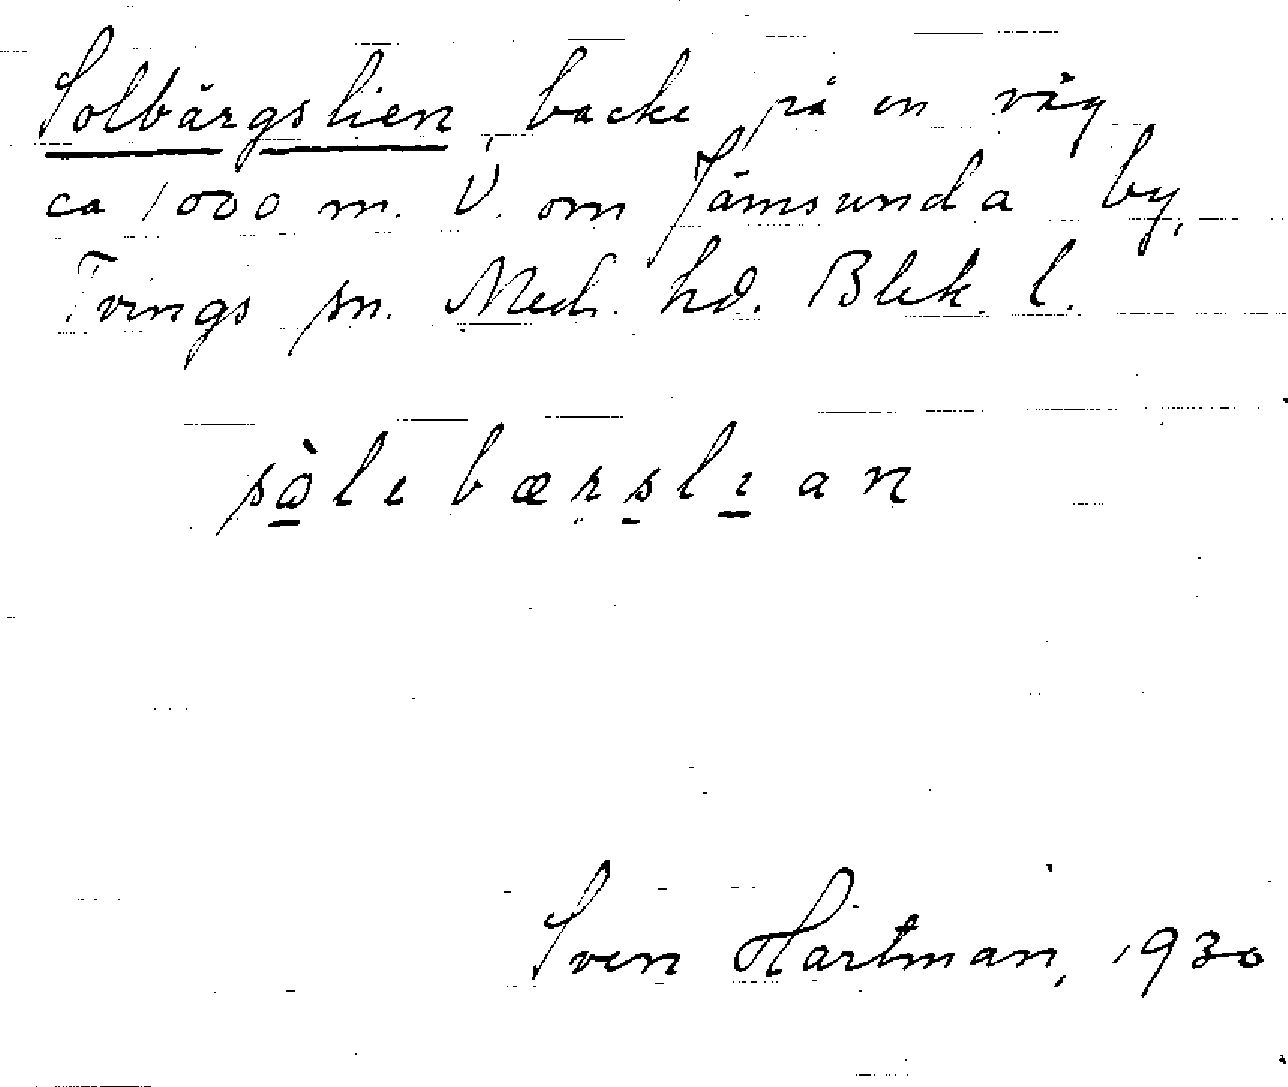 Solbärgslien, backe på en väg
ca 1000 m. V. om Jämsunda by,
Tvings sn. Med. hd. Blek. l.
sὰlebærslıan
Sven Hartman, 1930